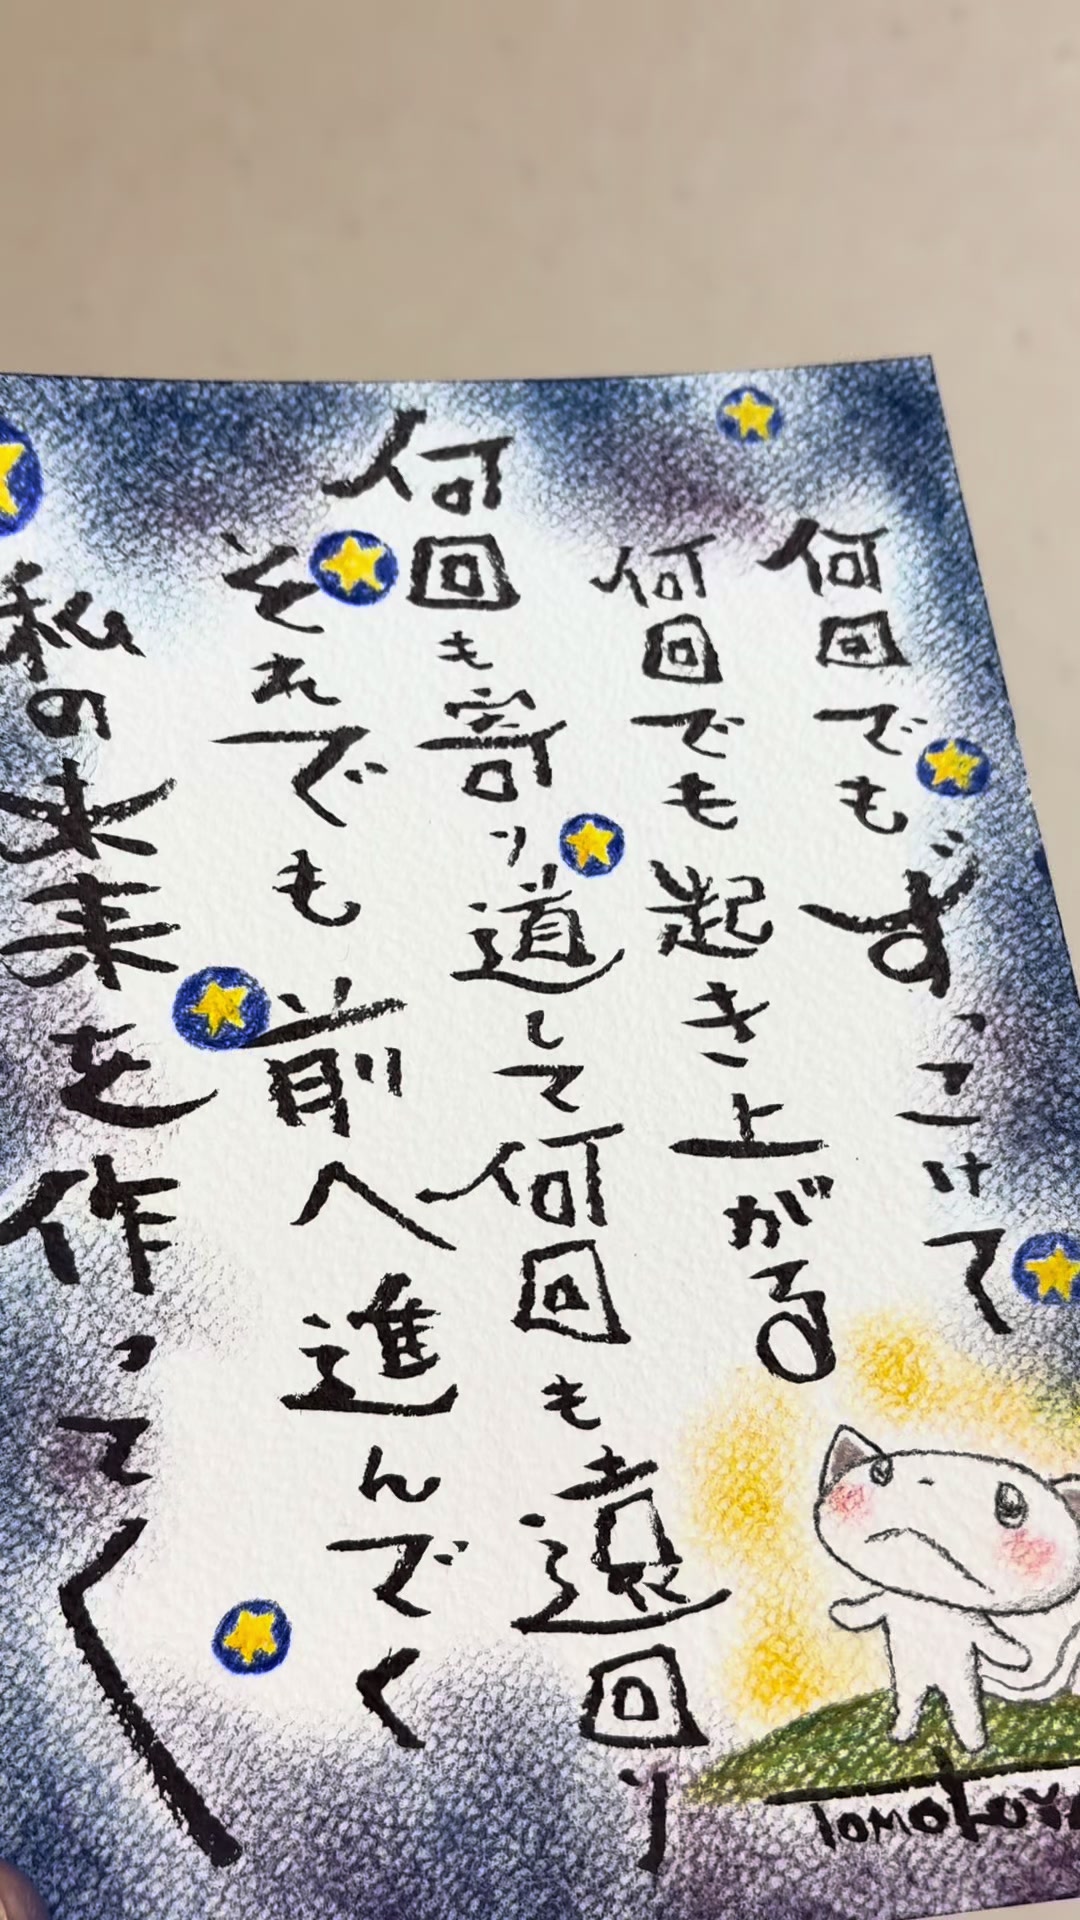 何回でもずっこけて
何回でも起き上がる
何回も寄り道して何回も遠回り
それでも前へ進んでく
私の未来を作ってく